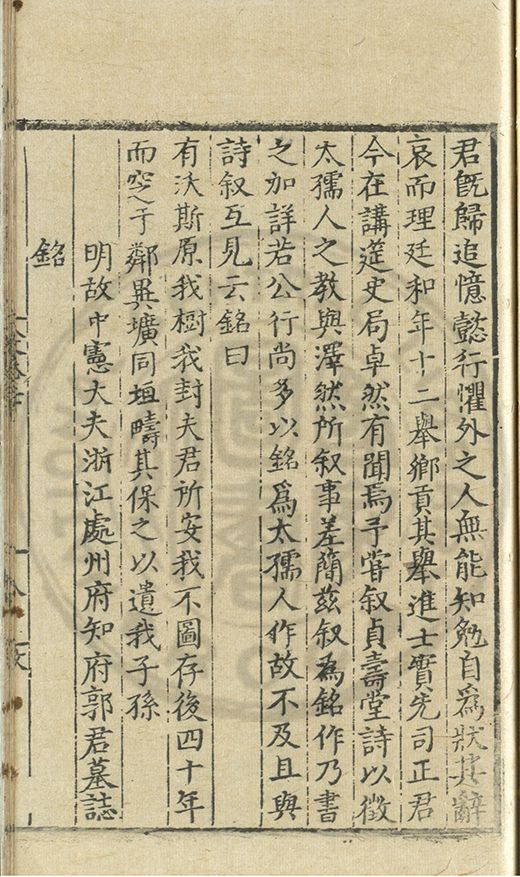 君既歸追憶懿行懼外之人無能知勉自為狀其辭
哀而理廷和年十二舉鄉貢其舉進士實先司正君
今在講筵史局卓然有聞焉予嘗叙貞壽堂詩以徵
太孺人之教與澤然所叙事差簡茲叙為銘作乃書
之加詳若公行尚多以銘為太孺人作故不及且與
詩叙互見云銘曰
有沃斯原我樹我封夫君所安我不圖存後四十年
而窆于鄰異壙同垣疇其保之以遺我子孫
明故中憲大夫浙江處州府知府郭君墓誌
銘